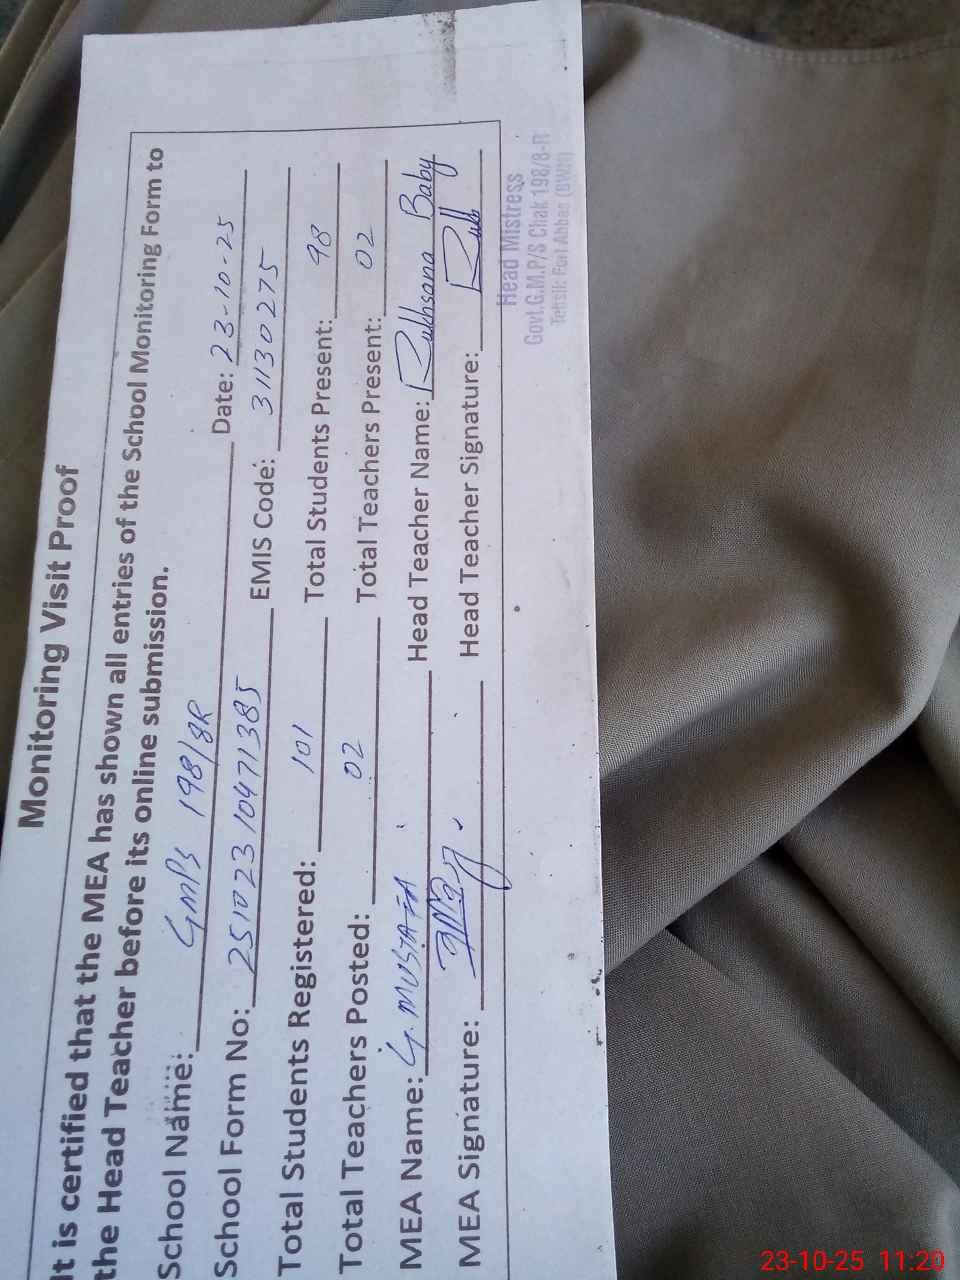 Monitoring Visit Proof
It is certified that the MEA has shown all entries of the School Monitoring Form to
the Head Teacher before its online submission.
School Name: GMPS 198/8R Date: 23-10-25
School Form No: 25102310471385 EMIS Code: 31130275
Total Students Registered: 101 Total Students Present: 98
Total Teachers Posted: 02 Total Teachers Present: 02
MEA Name: G. MUSTAFA Head Teacher Name: Rukhsana Baby
MEA Signature: Head Teacher Signature: Rukh
Head Mistress
Govt.G.M.P/S Chak 198/8-R
Tehsil: Fort Abbas (BWN)
23-10-25 11:20